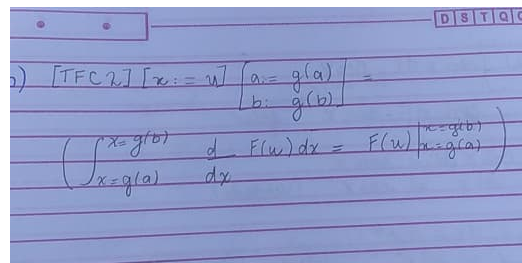 D S T Q Q
b) [TFC2] [x := u] [a := g(a)
b: g(b)] =
(∫ x=g(b) x=g(a) d/dx F(u) dx = F(u) | x=g(b) x=g(a))